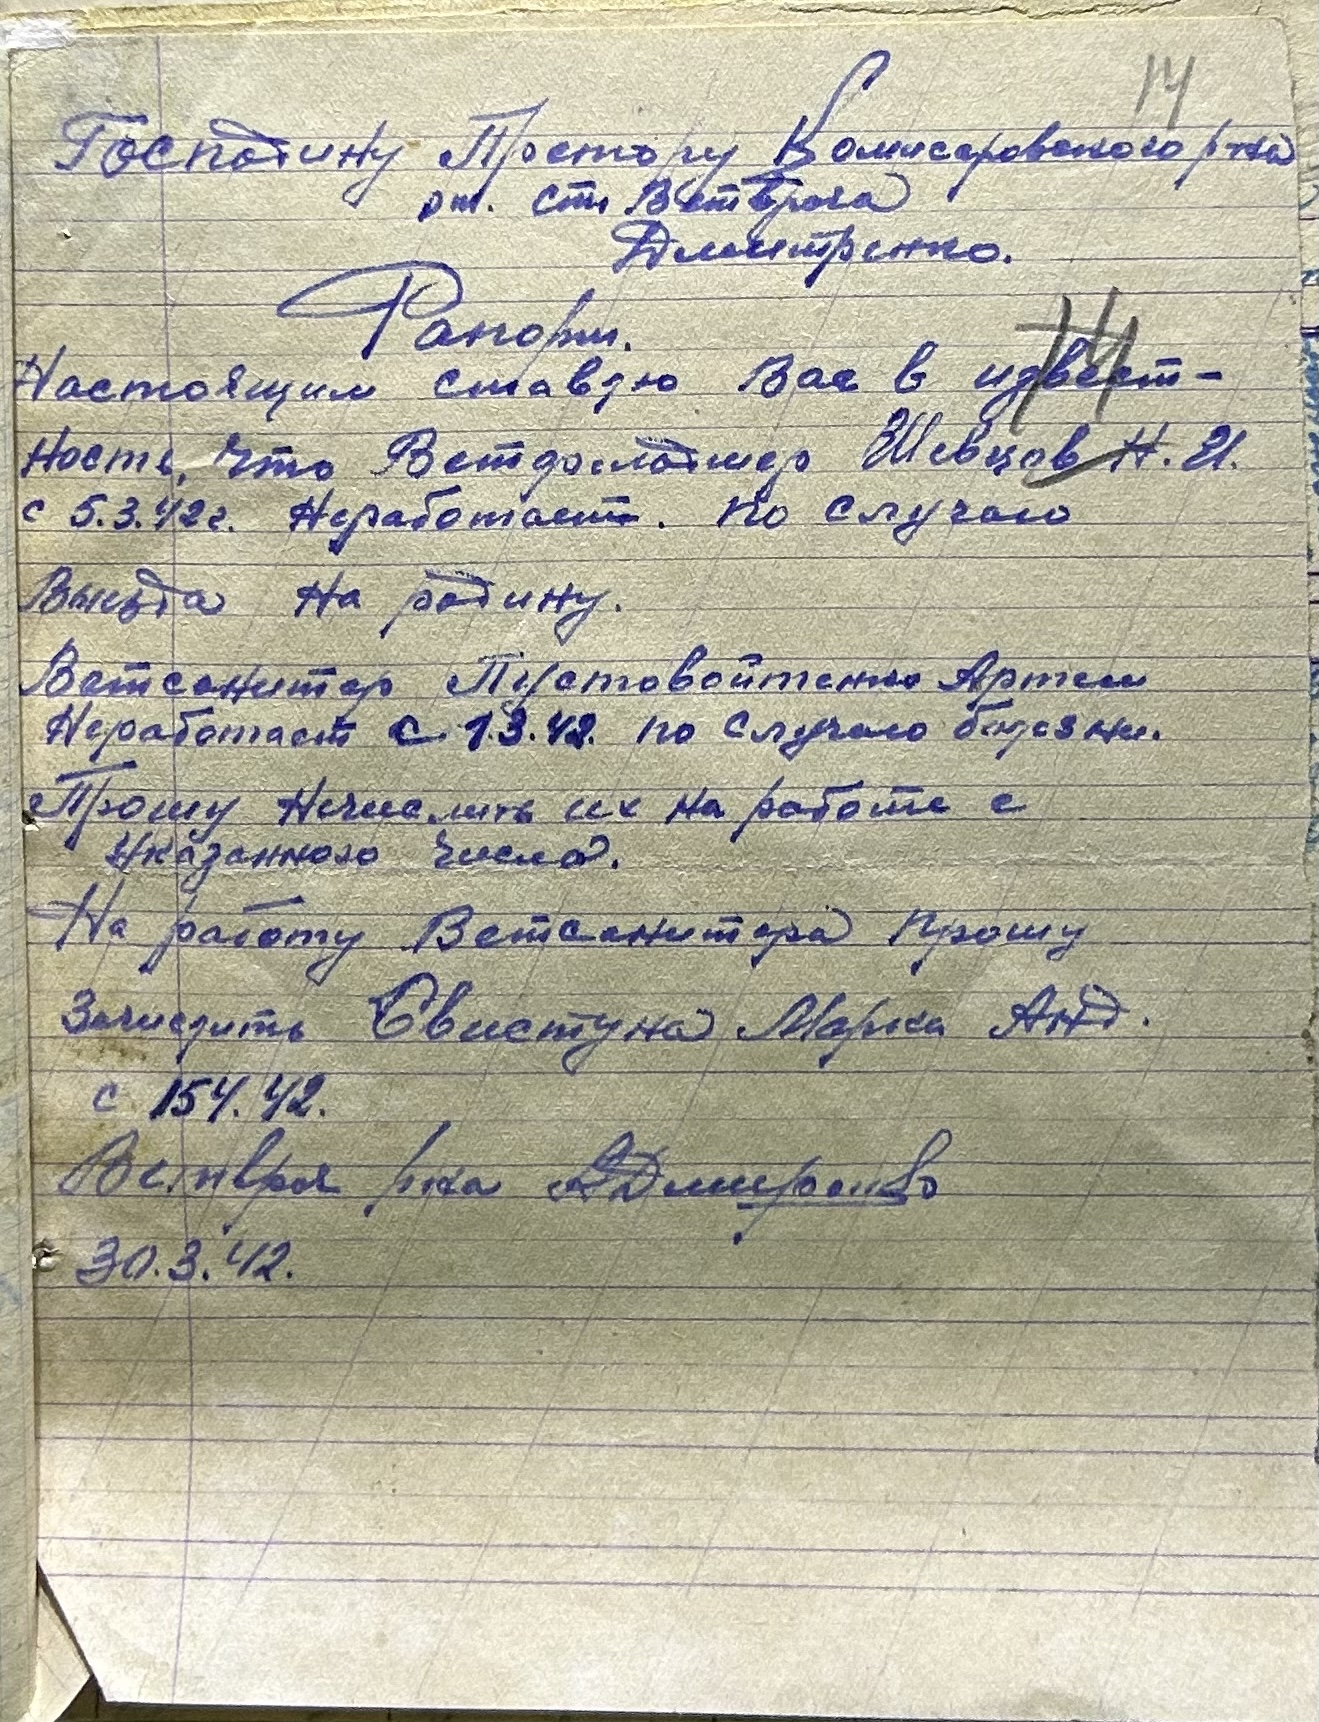 14
Господину Простору Комисаровского р-на
от. ст. Ветврача
Дмитренко.
Рапорт.
Настоящим ставлю Вас в извест-
ность, что Ветфельдшер Шевцов Н. И.
с 5.3.42 г. Неработает. по случаю
Выезда на родину.
Ветсанитар Пустовойтенко Артем
Неработает с 1.3.42. по случаю болезни.
Прошу Нечислить их на работе с
Указанного числа.
На работу Ветсанитара прошу
Зачислить Свистуна Марка Анд.
с 15 4. 42.
Ветвр р-на Дмитренко
30.3.42.